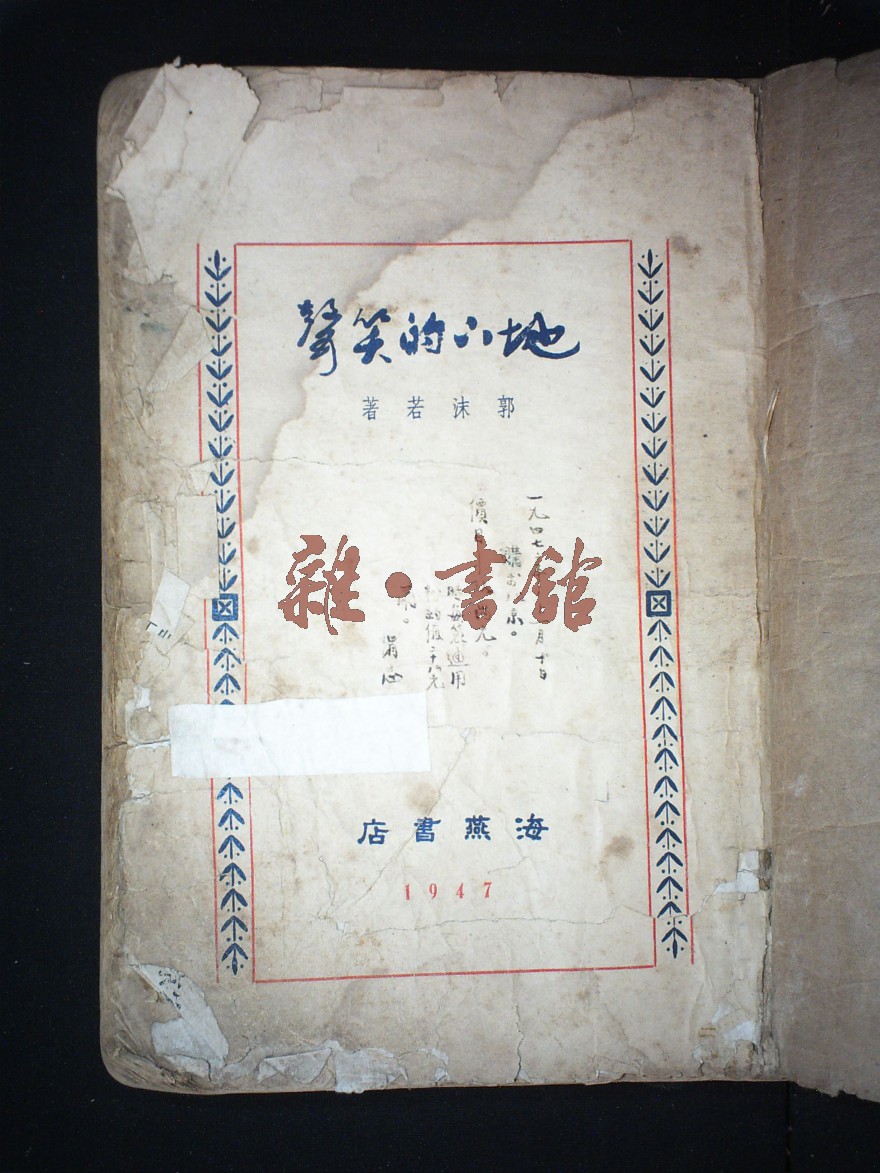 地下的笑聲
郭沫若著
一九四七 月十日
購 京。
價 元。
通用
約值 元
志
雜·書館
海燕書店
1947